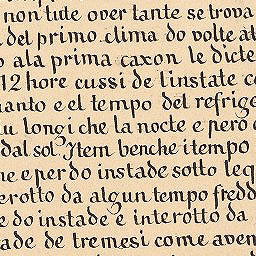 non tute over tante se trova
del primo clima do volte at
ala prima caxon le dicte
12 hore cussi de linstate c
uanto e el tempo del refrige
u longi che la nocte e pero
dal sol. Jtem benche i tempo
ne e per do instade sotto leq
erotto da algun tempo fredd
e do instade e interotto da
ade de tremesi come aven